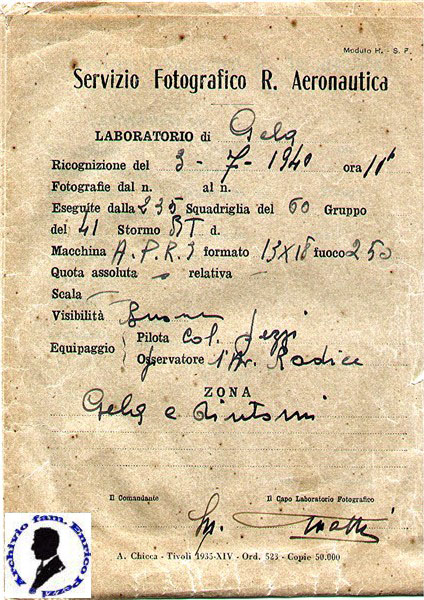 Modulo H. - S. F.
Servizio Fotografico R. Aeronautica
LABORATORIO di Gela
Ricognizione del 3 - 7 - 1940 ora 11
Fotografie dal n. al n.
Eseguite dalla 235 Squadriglia del 60 Gruppo
del 41 Stormo BT d.
Macchina A.P.R.3 formato 13x18 fuoco 250
Quota assoluta relativa
Scala
Visibilità Buona
Equipaggio
Pilota Col. Pezzi
Osservatore 1° Av. Radice
ZONA
Gela e dintorni
Il Comandante
Il Capo Laboratorio Fotografico
A. Chicca - Tivoli 1935-XIV - Ord. 523 - Copie 50.000
Archivio fam. Enrico Pezzi